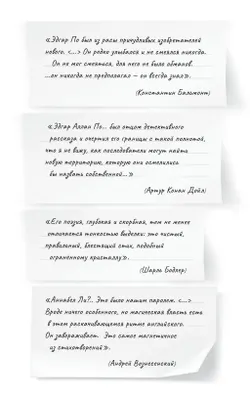 «Эдгар По был из расы причудливых изобретателей
нового. <...> Он редко улыбался и не смеялся никогда.
Он не мог смеяться, для него не было обманов.
...он никогда не предполагал – он всегда знал».
(Константин Бальмонт)
«Эдгар Аллан По... был отцом детективного
рассказа и очертил его границы с такой полнотой,
что я не вижу, как последователи могут найти
новую территорию, которую они осмелились
бы назвать собственной...»
(Артур Конан Дойл)
«Его поэзия, глубокая и скорбная, тем не менее
отличается тонкостью выделки: это чистый,
правильный, блестящий стих, подобный
огранённому кристаллу».
(Шарль Бодлер)
«Аннабел Ли?.. Это было нашим паролем. <...>
Вроде ничего особенного, но магическая власть есть
в этом раскачивающемся ритме английского.
Он завораживает. Это самое магическое
из стихотворений».
(Андрей Вознесенский)